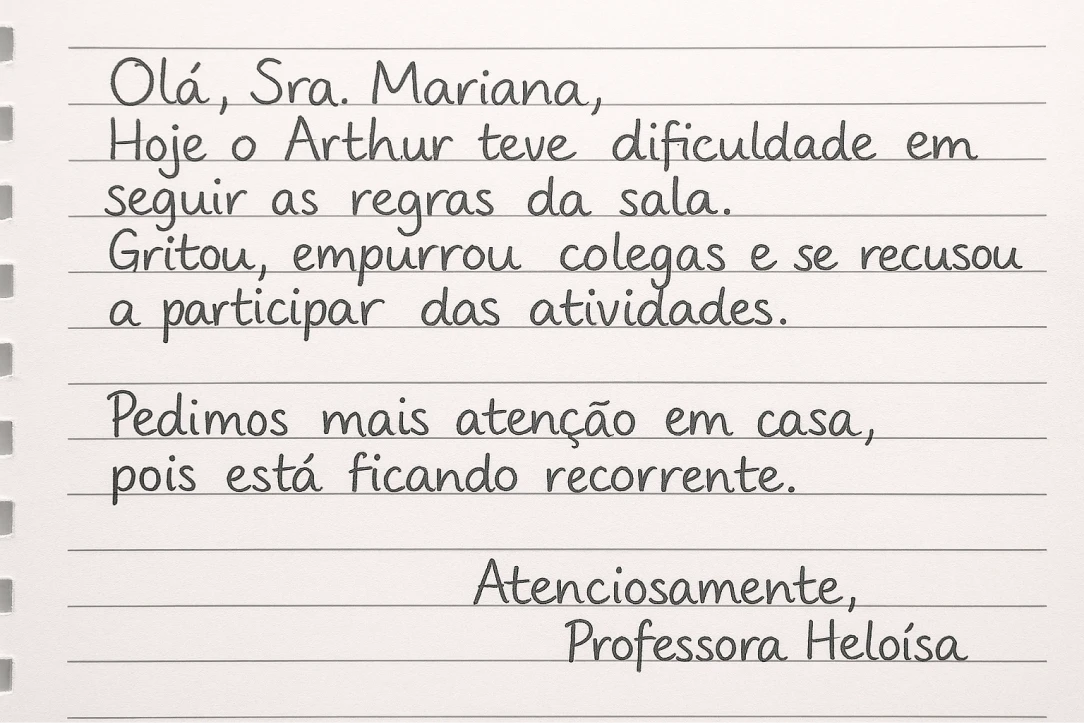 Olá, Sra. Mariana,
Hoje o Arthur teve dificuldade em
seguir as regras da sala.
Gritou, empurrou colegas e se recusou
a participar das atividades.
Pedimos mais atenção em casa,
pois está ficando recorrente.
Atenciosamente,
Professora Heloísa